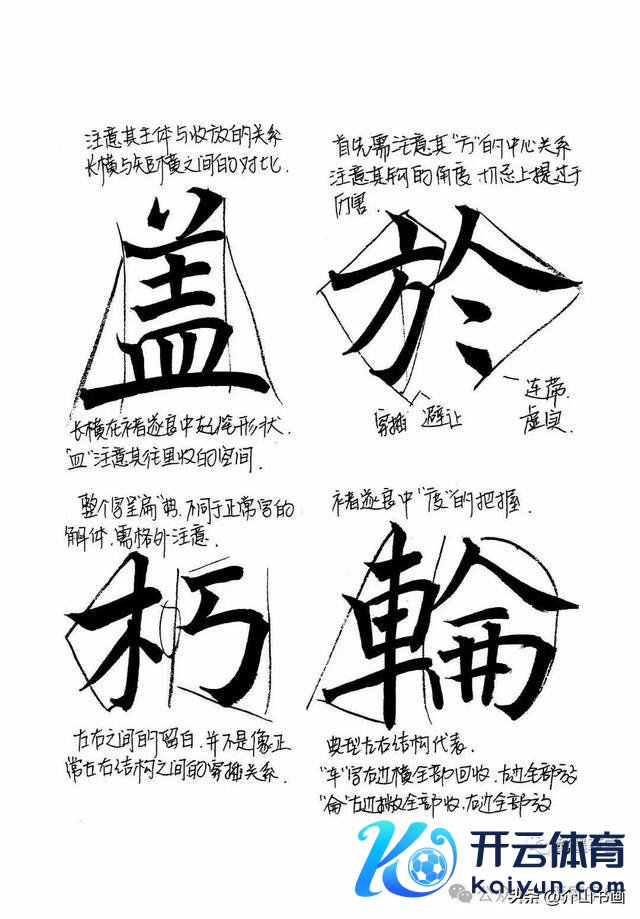 注意其主体与收放的关系
长横与短横之间的对比.
盖
长横在褚遂良中起笔形状.
"皿"注意其往里收的空间.
首先需注意其"方"的中心关系
注意其钩的角度,切忌上提过于
厉害.
於
穿插 避让
连带.
虚实.
整个字呈"扁"势.不同于正常字的
解体.需格外注意.
朽
左右之间的留白.并不是像正
常左右结构之间的穿插关系.
褚遂良中"度"的把握.
輪
典型左右结构代表.
"车"字右边横全部回收.左边全部放
"侖"左边撇全部收.右边全部放
开云体育
kaiyun.com
头条@介山书画